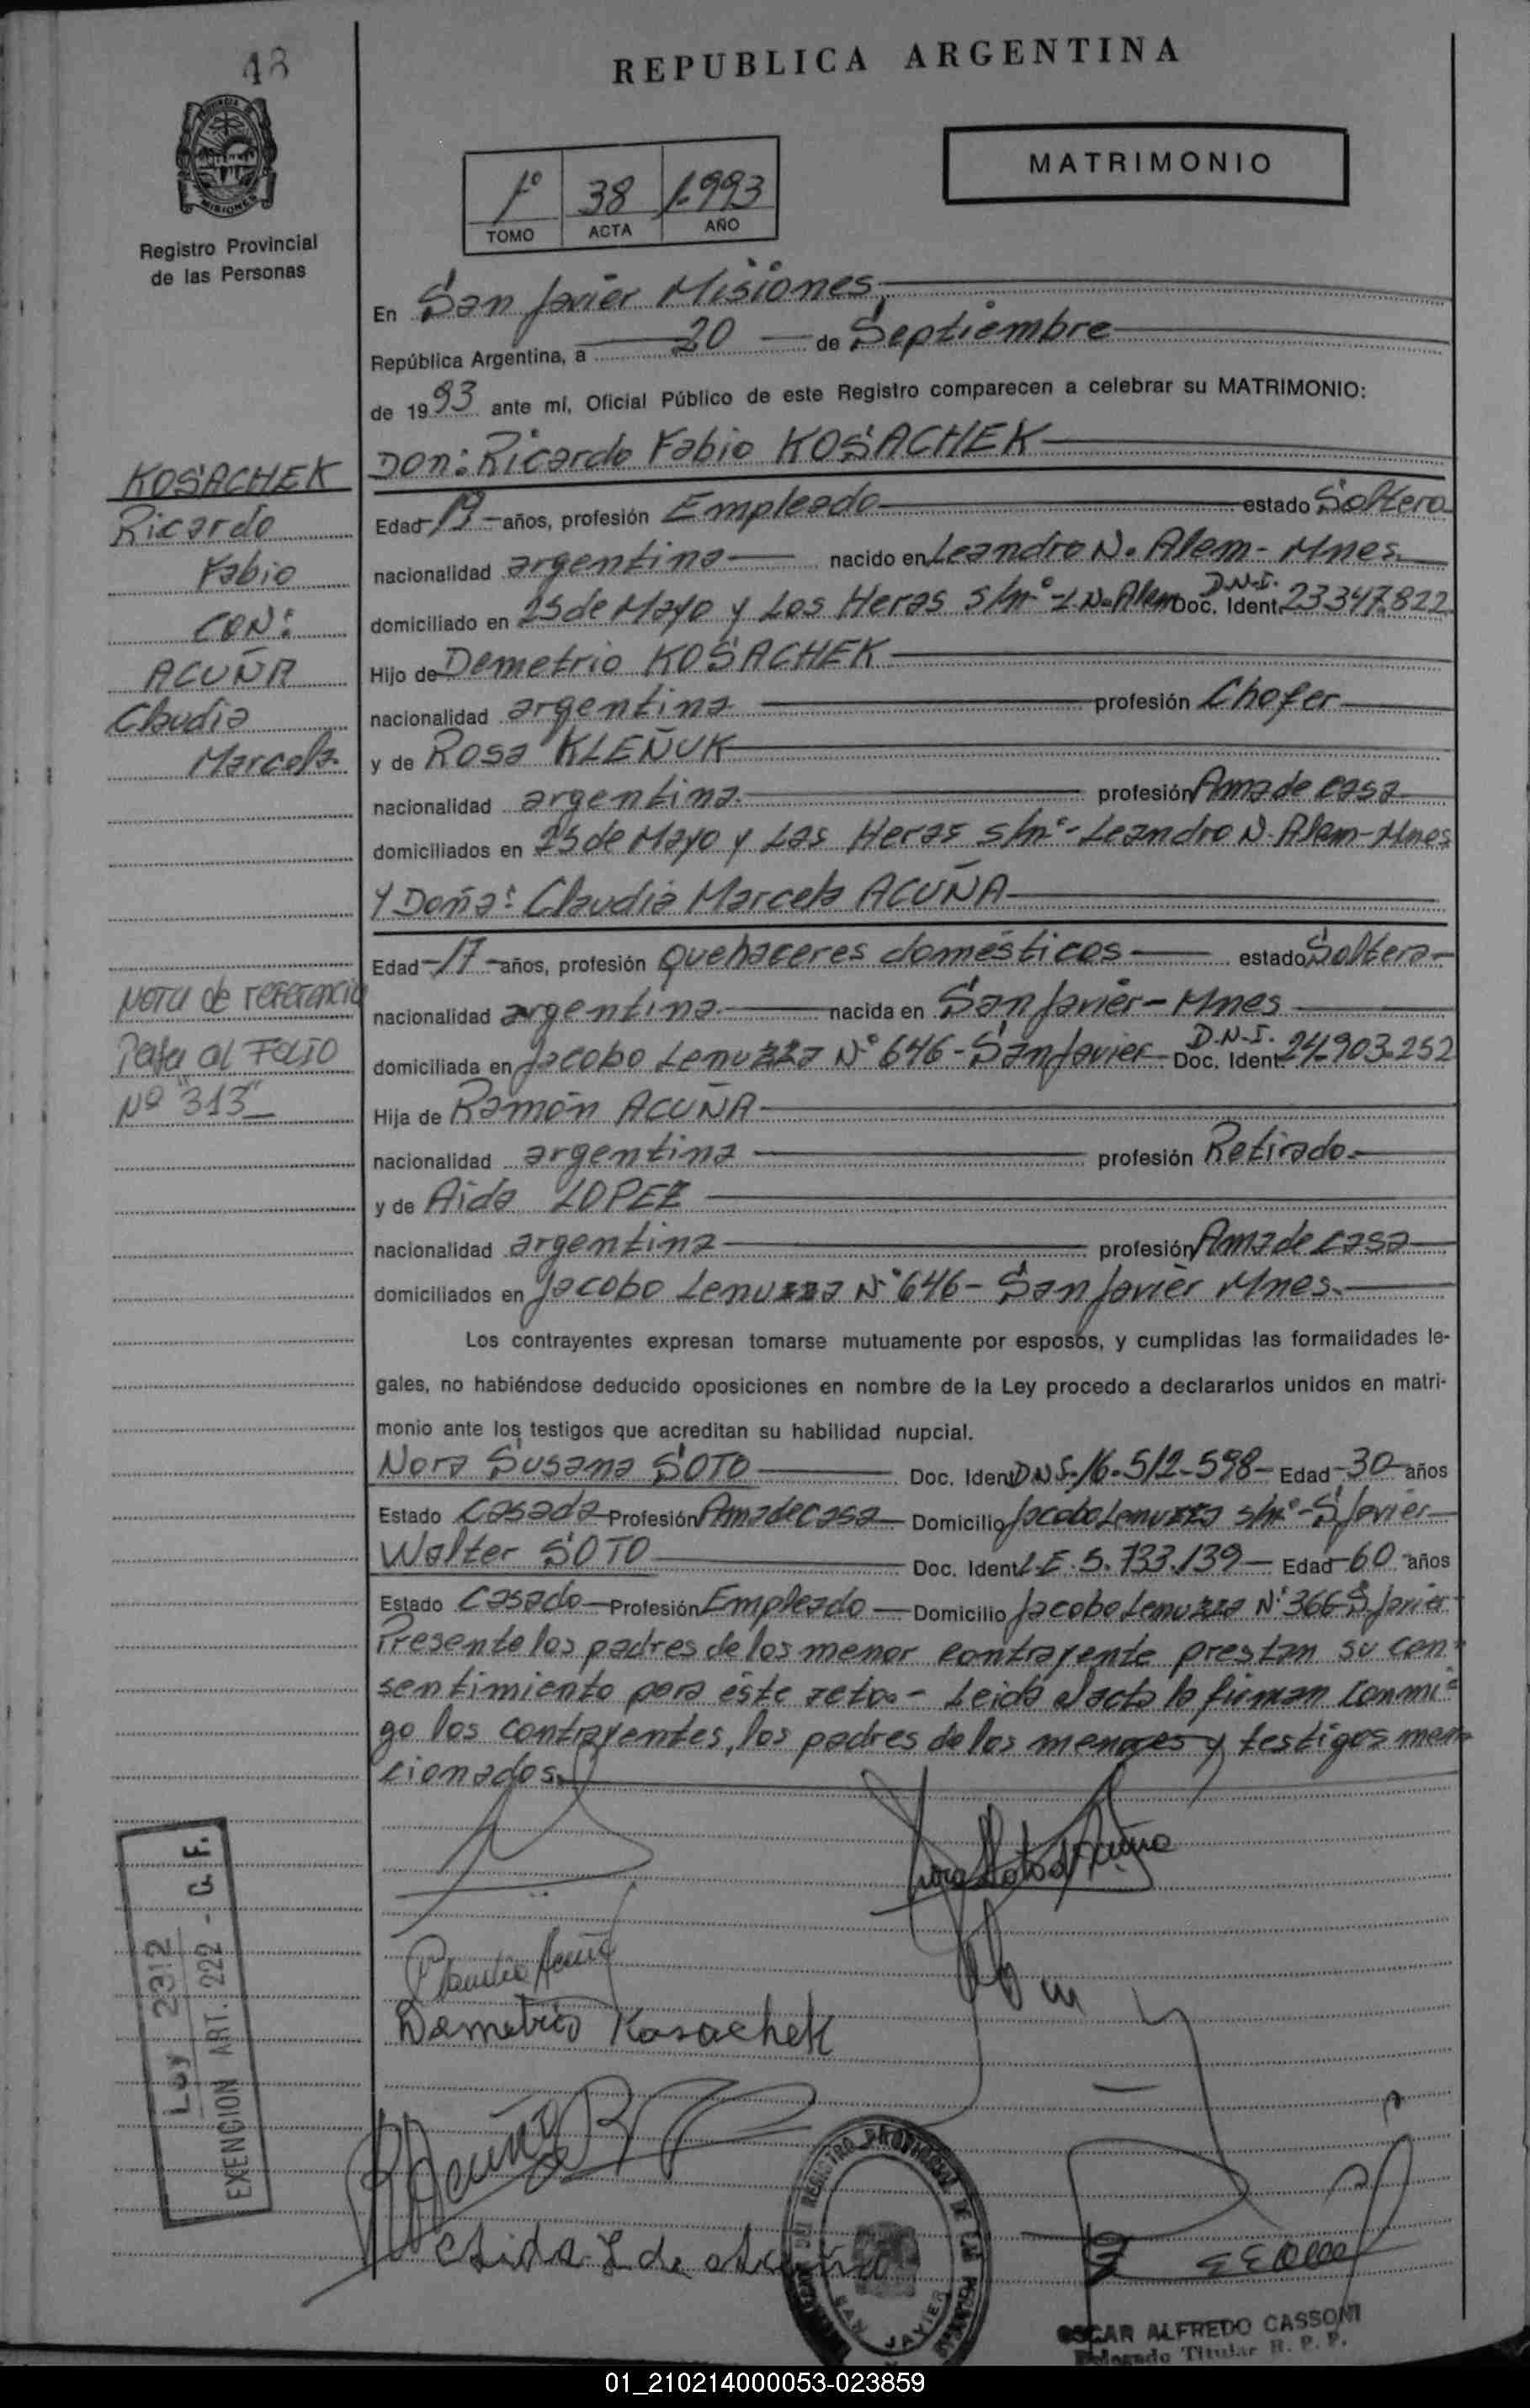 48
REPUBLICA ARGENTINA
PROVINCIA DE
MISIONES
Registro Provincial
de las Personas
1º 38 1.993
TOMO ACTA AÑO
MATRIMONIO
En San Javier Misiones,
República Argentina, a 20 de Septiembre
de 1993 ante mí, Oficial Público de este Registro comparecen a celebrar su MATRIMONIO:
Don: Ricardo Fabio KOSACHEK
Edad 19 años, profesión Empleado estado Soltero
nacionalidad argentina nacido en Leandro N. Alem - Mnes.
domiciliado en 25 de Mayo y Los Heras s/nº - L.N. Alem D.N.I. Doc. Ident. 23347.822
Hijo de Demetrio KOSACHEK
nacionalidad argentina profesión Chofer
y de Rosa KLEÑUK
nacionalidad argentina. profesión Ama de casa
domiciliados en 25 de Mayo y Las Heras s/nº - Leandro N. Alem - Mnes
Y Doña: Claudia Marcela ACUÑA
Edad 17 años, profesión quehaceres domésticos estado Soltera
nacionalidad argentina nacida en San Javier - Mnes
domiciliada en Jacobo Lenuzza Nº 646 - San Javier D.N.I. Doc. Ident. 24.903.252
Hija de Ramón ACUÑA
nacionalidad argentina profesión Retirado.
y de Aida LOPEZ
nacionalidad argentina profesión Ama de casa
domiciliados en Jacobo Lenuzza Nº 646 - San Javier Mnes.
Los contrayentes expresan tomarse mutuamente por esposos, y cumplidas las formalidades le-
gales, no habiéndose deducido oposiciones en nombre de la Ley procedo a declararlos unidos en matri-
monio ante los testigos que acreditan su habilidad nupcial.
Nora Susana SOTO Doc. Ident DNI. 16.512.598 Edad 30 años
Estado Casada Profesión Ama de casa Domicilio Jacobo Lenuzza s/nº - S Javier
Walter SOTO Doc. Ident L.E. 5.733.139 Edad 60 años
Estado Casado Profesión Empleado Domicilio Jacobo Lenuzza Nº 366 S Javier
Presente los padres de los menor contrayente prestan su con-
sentimiento para éste acto.- Leida el acta la firman conmi-
go los contrayentes, los padres de los menores y testigos men
cionados.
KOSACHEK
Ricardo
Fabio
CON:
ACUÑA
Claudia
Marcela
Nota de referencia
Pasa al Folio
Nº "313"
Ley 2312
EXENCION ART. 222 - C. F.
Claudia Acuña
Demetrio Kosachek
Acuña
Aida L de Acuña
REGISTRO PROVINCIAL DE LA
SAN JAVIER
OSCAR ALFREDO CASSONI
Delegado Titular R. P. P.
01_210214000053-023859